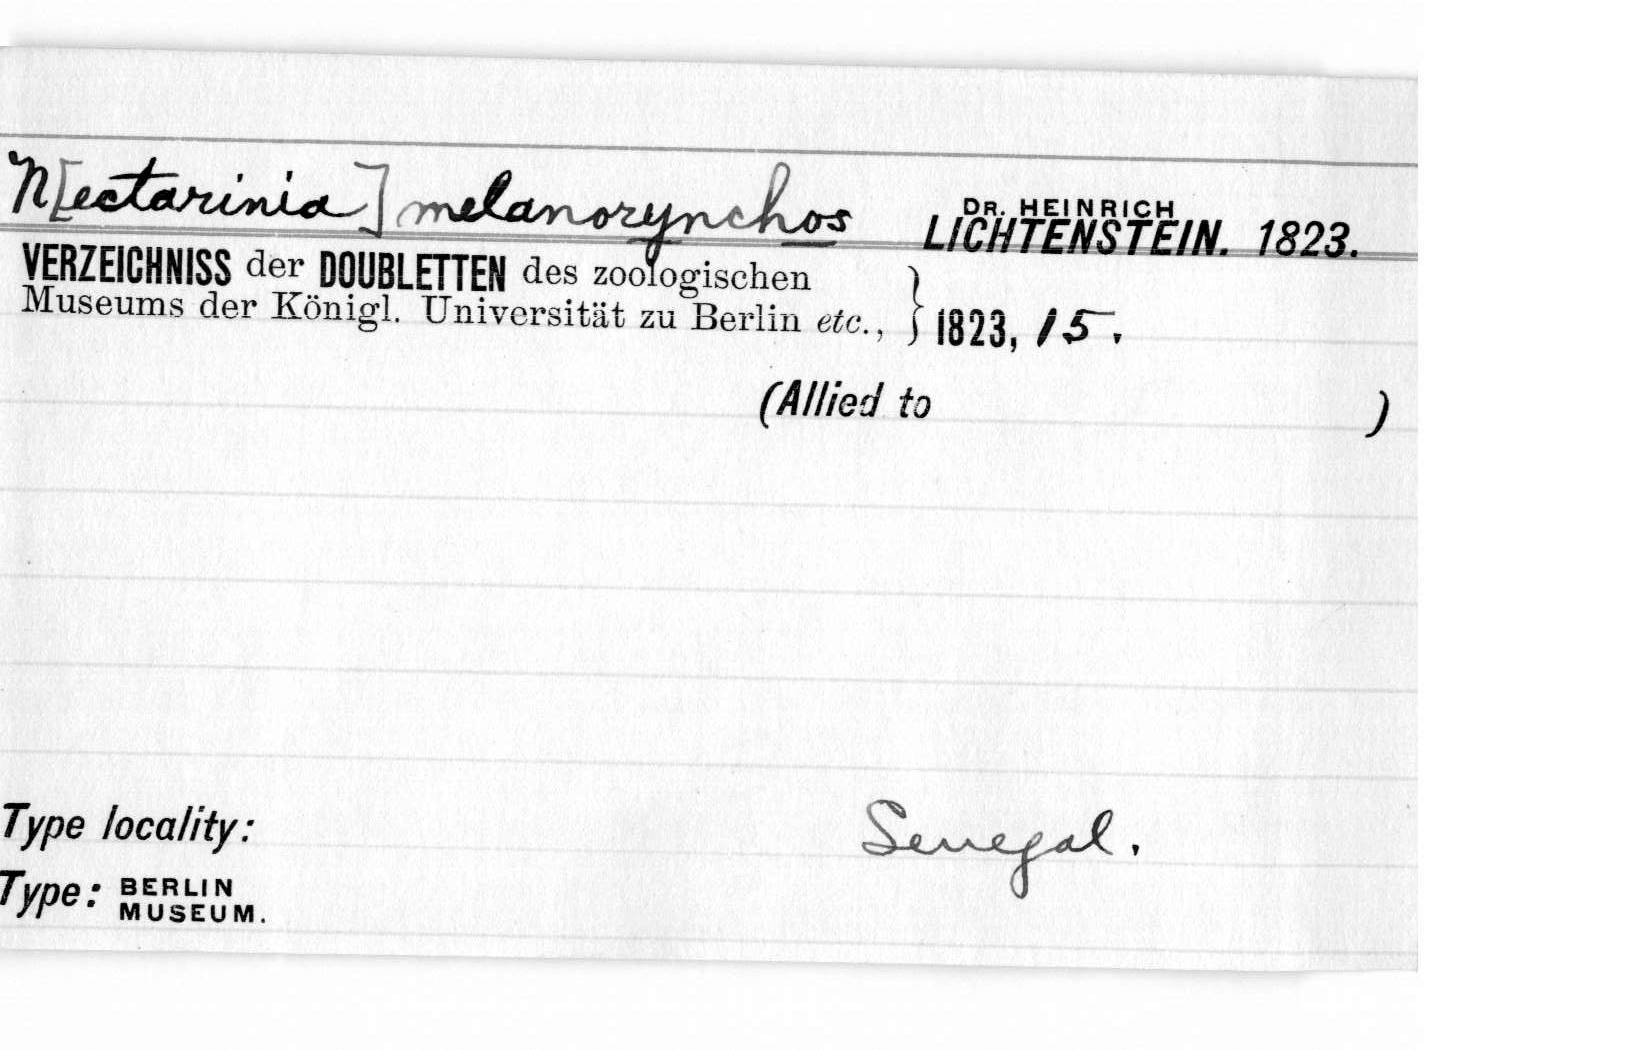 N[ectarinia] melanorynchos DR. HEINRICH LICHTENSTEIN. 1823.
VERZEICHNISS der DOUBLETTEN des zoologischen
Museums der Königl. Universität zu Berlin etc., } 1823, 15.
(Allied to )
Type locality: Senegal.
Type: BERLIN MUSEUM.